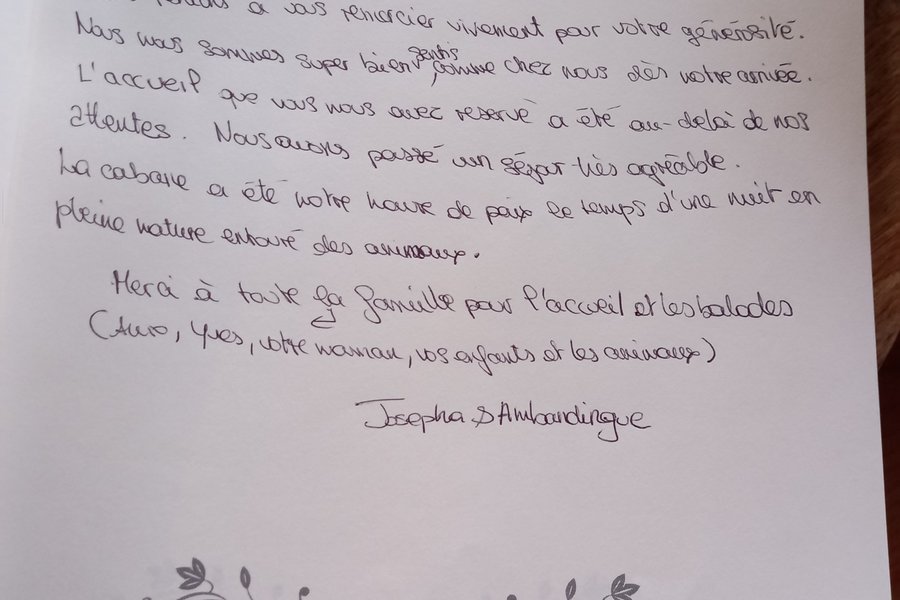 tenons à vous remercier vivement pour votre générosité.
Nous nous sommes super bien sentis, comme chez nous dès notre arrivée.
L'accueil que vous nous avez reservé a été au-delà de nos
attentes. Nous avons passé un séjour très agréable.
La cabane a été notre havre de paix le temps d'une nuit en
pleine nature entouré des animaux.
Merci à toute la famille pour l'accueil et les balades
(Auro, Yves, votre maman, vos enfants et les animaux)
Josepha & Ambardingue